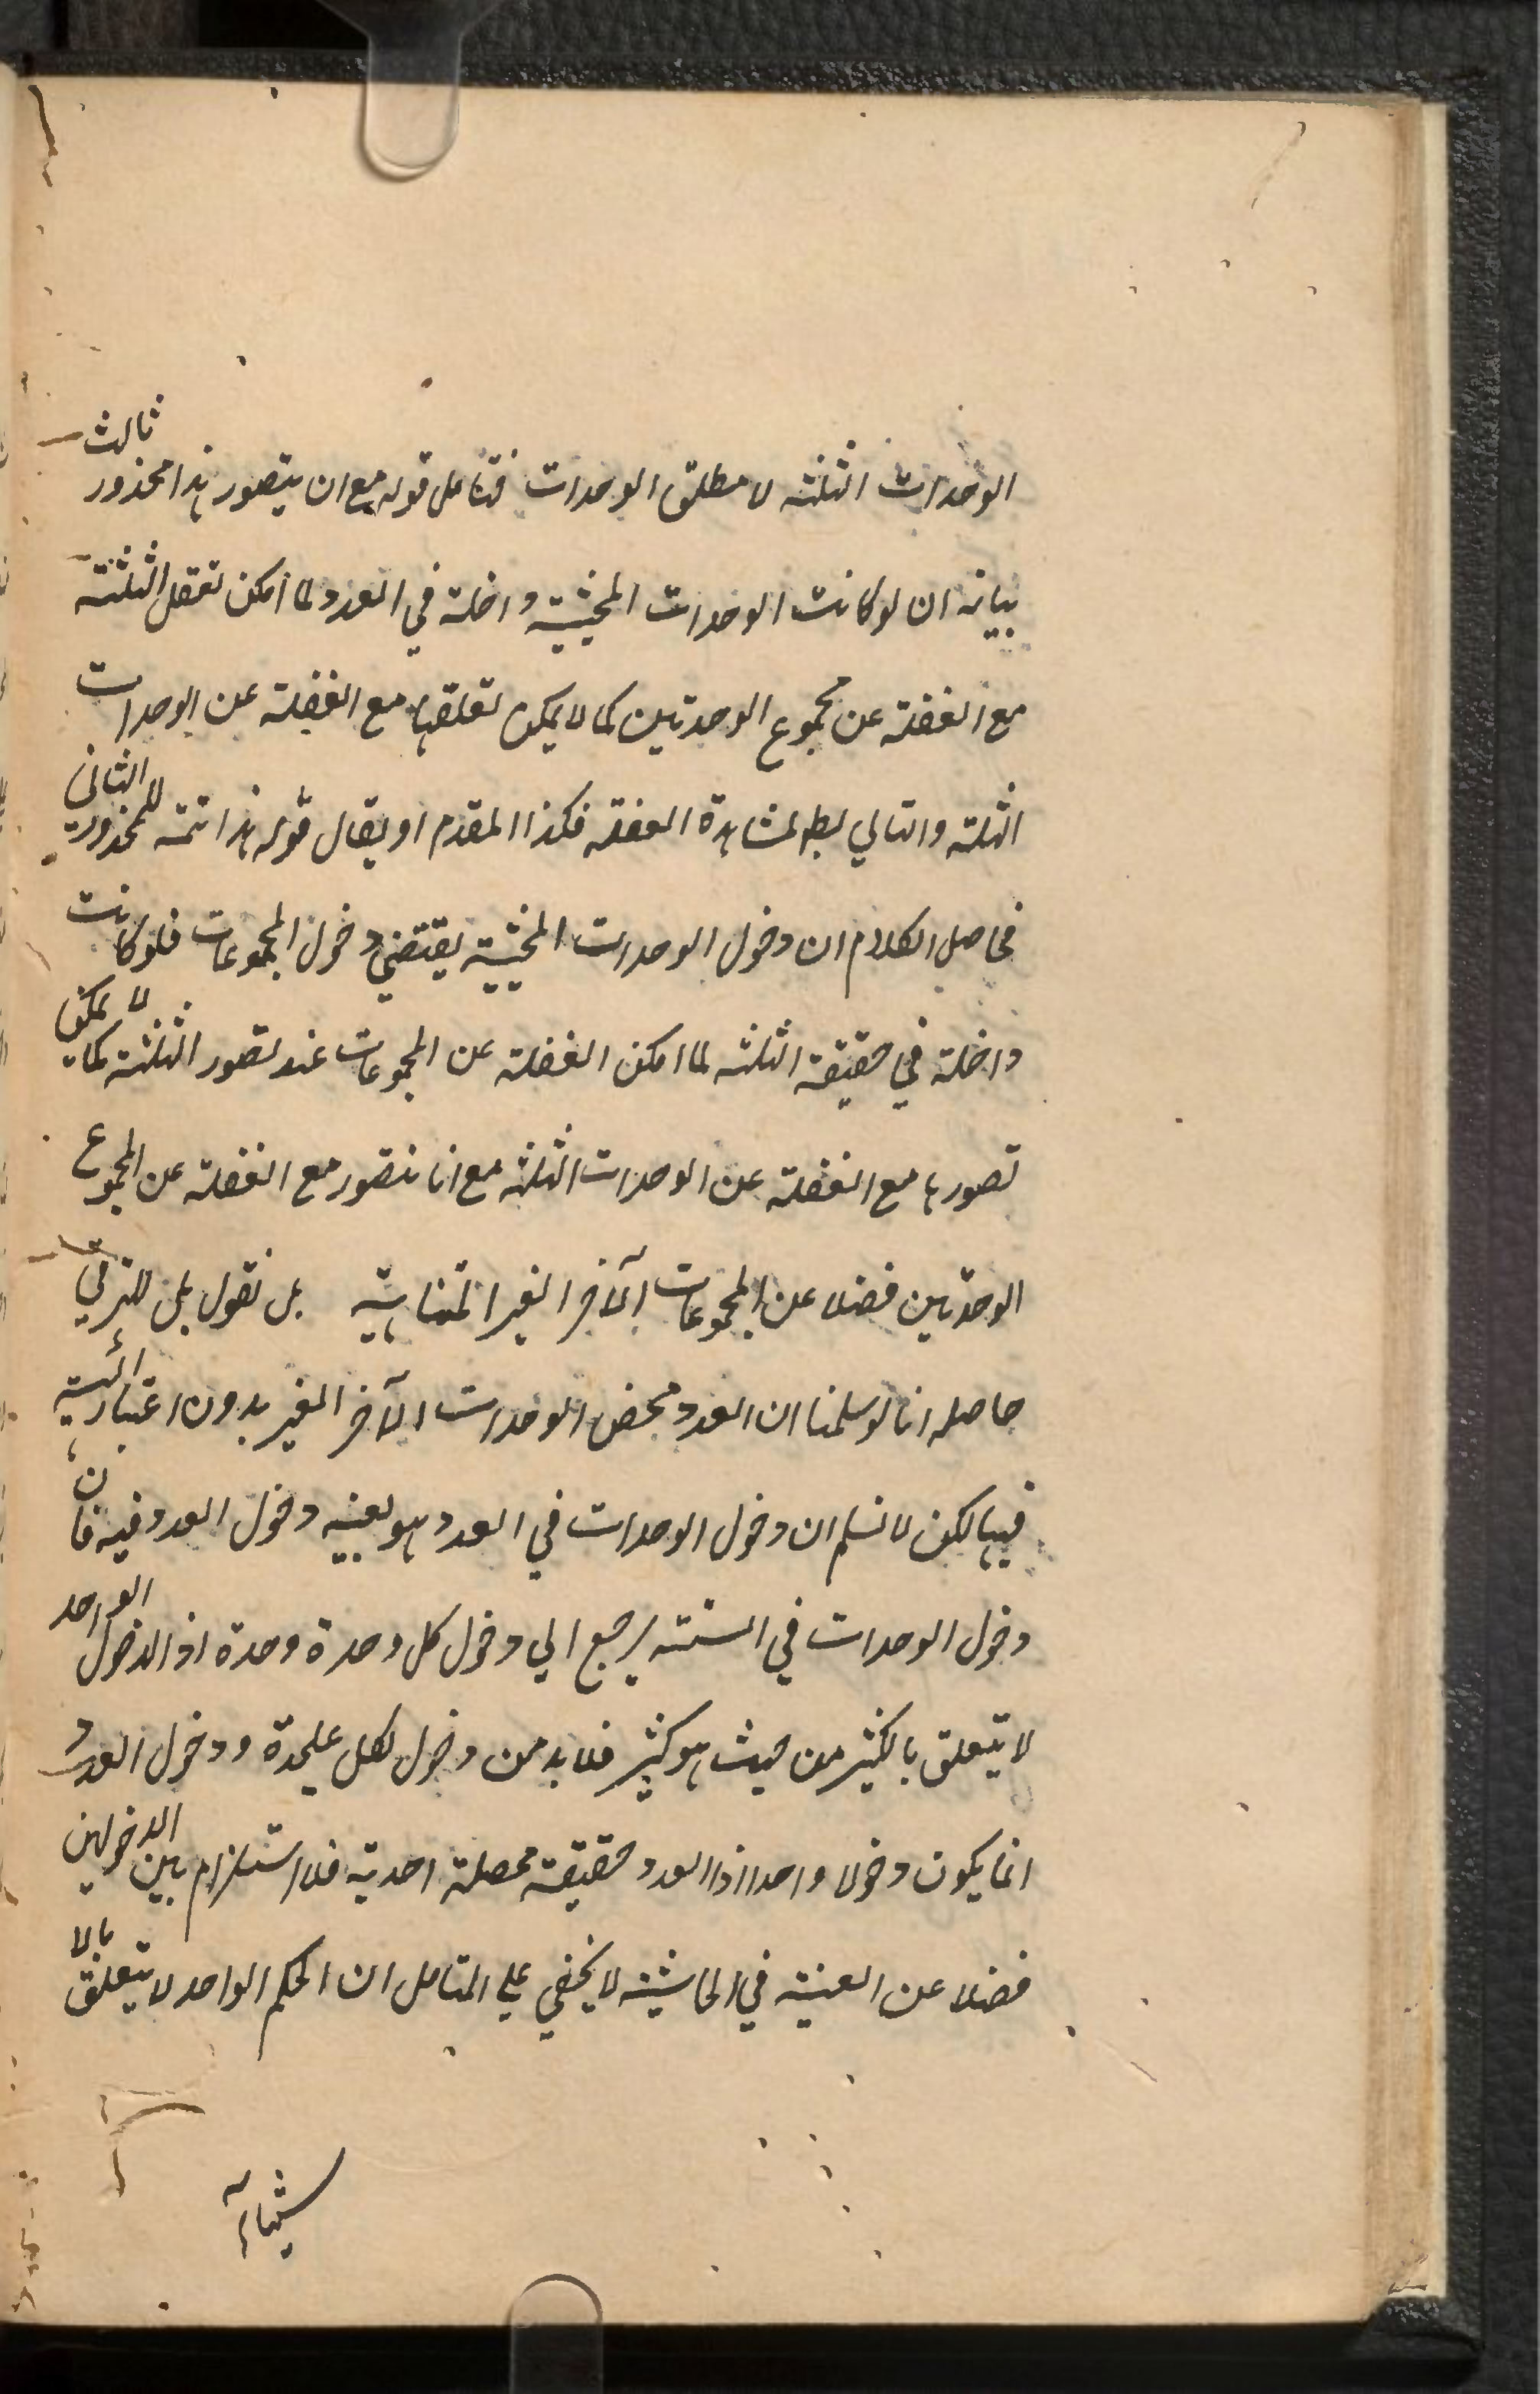 الوحدات الثلثه لا مطلق الوحدات فتامل قوله مع ان يتصور هذا محذور ثالث
بيانه ان لو كانت الوحدات المحيثية داخلة في العدد لما امكن تعقل الثلثة
مع الغفلة عن مجموع الوحدتين كما لا يمكن تعقلها مع الغفلة عن الوحدات
الثلثة والتالي بط لمشاهدة الغفلة فكذا المقدم او يقال قوله هذا تتمة للمحذور الثاني
فحاصل الكلام ان دخول الوحدات المحيثية يقتضي دخول المجموعات فلو كانت
داخلة في حقيقة الثلثه لما امكن الغفلة عن المجموعات عند تصور الثلثة كما لا يمكن
تصورها مع الغفلة عن الوحدات الثلثه مع انا نتصور مع الغفلة عن المجموع
الوحدتين فضلا عن المجموعات الآخر الغير المتناهية بل نقول بل للترقي
حاصله انا لو سلمنا ان العدد محض الوحدات الآخر الغير بدون اعتبار الهيئة
فيها لكن لا نسلم ان دخول الوحدات في العدد هو بعينه دخول العدد فيه فان
دخول الوحدات في الستة يرجع الي دخول كل وحدة وحدة اذ الدخول الواحد
لا يتعلق بالكثير من حيث هو كثير فلا بد من دخول لكل عليحدة ودخول العدد
انما يكون دخولا واحدا اذ العدد حقيقة محصلة احدية فلا استلزام بين الدخولين
فضلا عن العينية في الحاشية لا يخفي علي المتامل ان الحكم الواحد لا يتعلق بالا
شياء